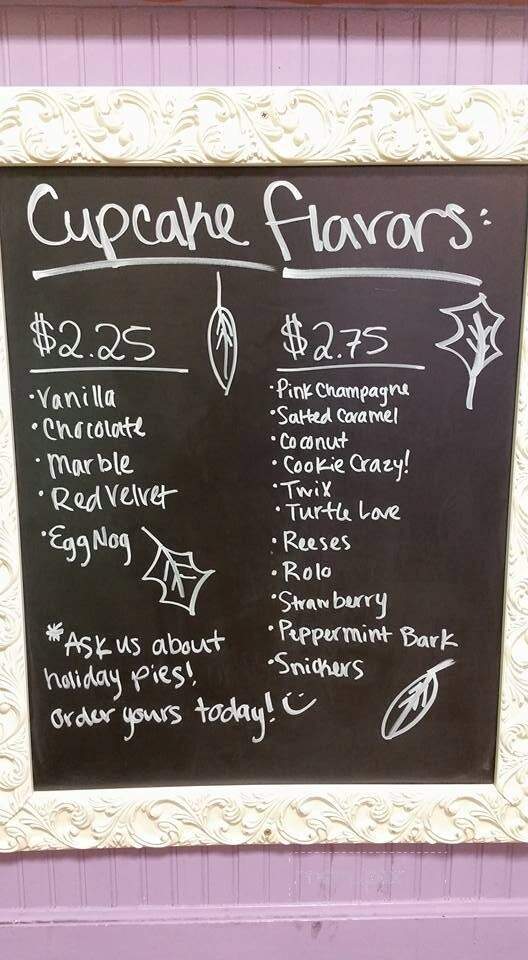 Cupcake flavors:
$2.25
• Vanilla
• Chocolate
• Marble
• Red Velvet
• Egg Nog
*Ask us about
holiday pies!
order yours today!
$2.75
• Pink Champagne
• Salted Caramel
• Coconut
• Cookie Crazy!
• Twix
• Turtle Love
• Reeses
• Rolo
• Strawberry
• Peppermint Bark
• Snickers